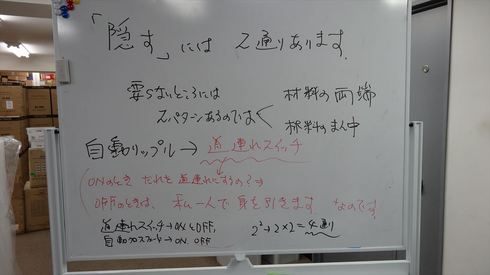 「隠す」には 2通りあります。
要らないところには
2パターンあるのではく
材料の両端
材料のまん中
自動リップル→道連れスイッチ
ONのとき だれを道連れにするの?⇒
OFFのときは、私一人で身を引きます なのです。
道連れスイッチ→ONとOFF,
自動 →ON. OFF
2²→2×2=4通り